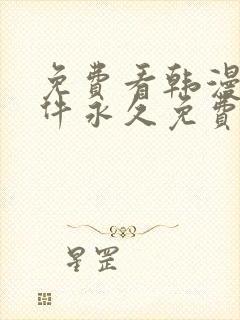 免费看韩漫
件永久免费
星罡